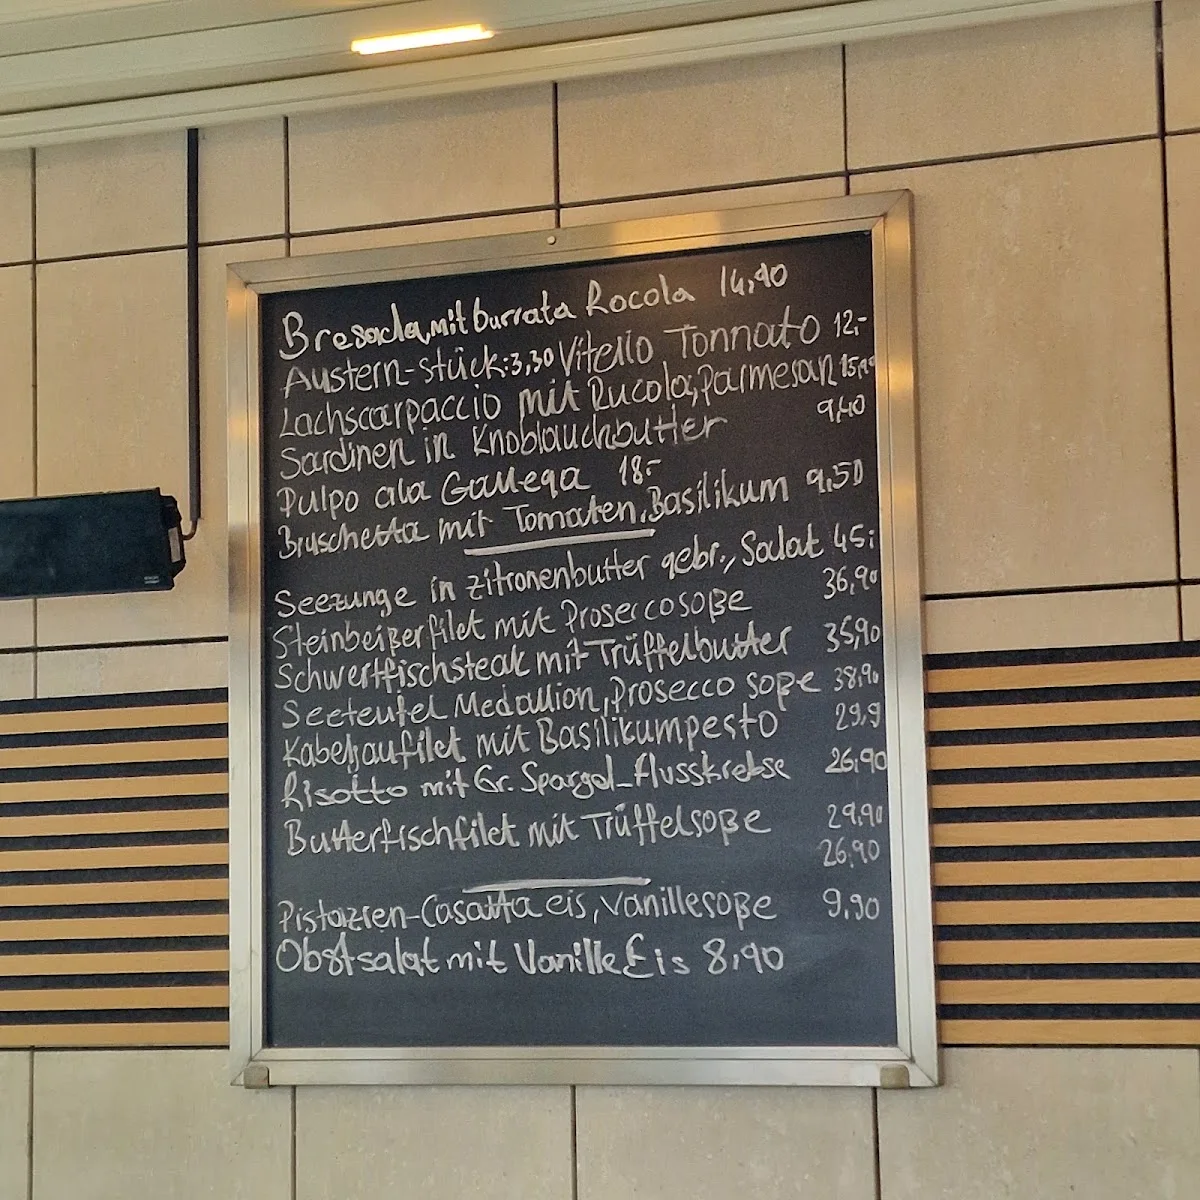 Bresaola, mit burrata Rocola 14,90
Austern-stück: 3,30 Vitello Tonnato 12,-
Lachscarpaccio mit Rucola, parmesan 15,90
Sardinen in Knoblauchbutter 9,40
Pulpo ala Gallega 18,-
Bruschetta mit Tomaten, Basilikum 9,50
Seezunge in zitronenbutter gebr., Salat 45,-
Steinbeißerfilet mit Proseccosoße 36,90
Schwertfischsteak mit Trüffelbutter 35,90
Seeteufel Medallion, Prosecco soße 38,90
Kabeljaufilet mit Basilikumpesto 29,9
Risotto mit Gr. Spargel_flusskrebse 26,90
Butterfischfilet mit Trüffelsoße 29,90
26,90
Pistazien-Casatta eis, Vanillesoße 9,90
Obstsalat mit Vanille Eis 8,90